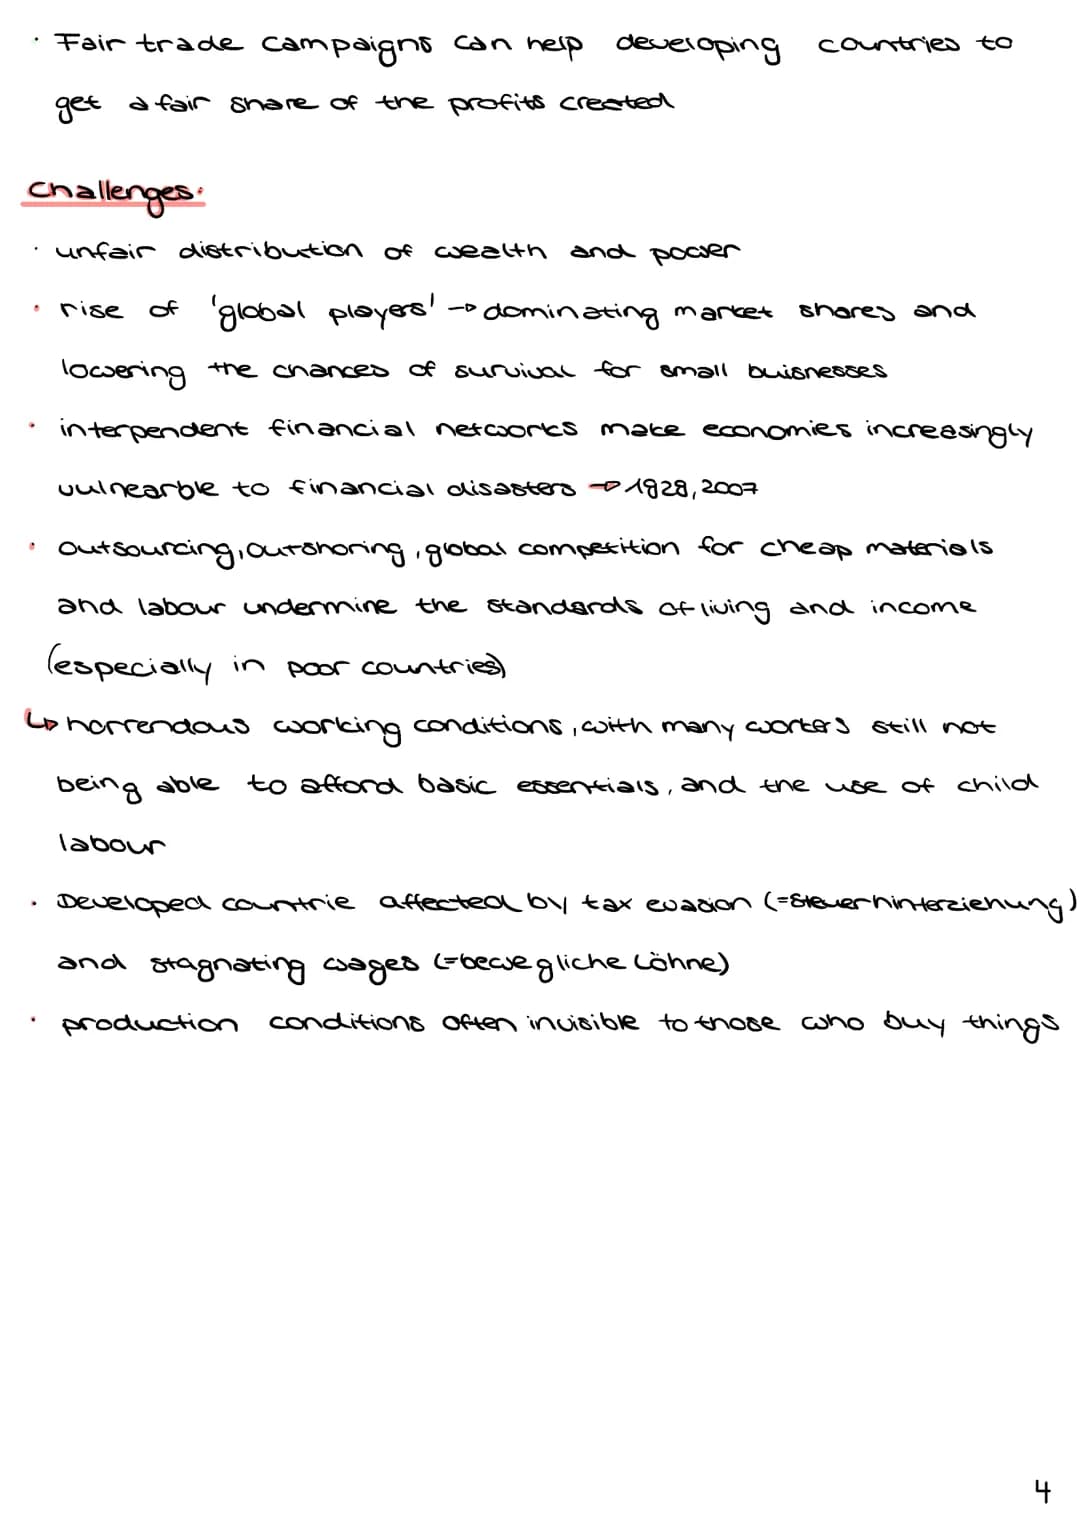 · Fair trade campaigns can help developing countries to
get a fair share of the profits created
Challenges:
· unfair distribution of wealth and power
· rise of 'global players' → dominating market shares and
lowering the chances of survival for small buisnesses
· interpendent financial networks make economies increasingly
vulnearble to financial disasters → 1928, 2007
· outsourcing, outshoring, global competition for cheap materials
and labour undermine the standards of living and income
(especially in poor countries)
↳ horrendous working conditions, with many workers still not
being able to afford basic essentials, and the use of child
labour
· Developed countrie affected by tax evasion (=Steuerhinterziehung)
and stagnating wages (=bewegliche Löhne)
· production conditions often invisible to those who buy things
4